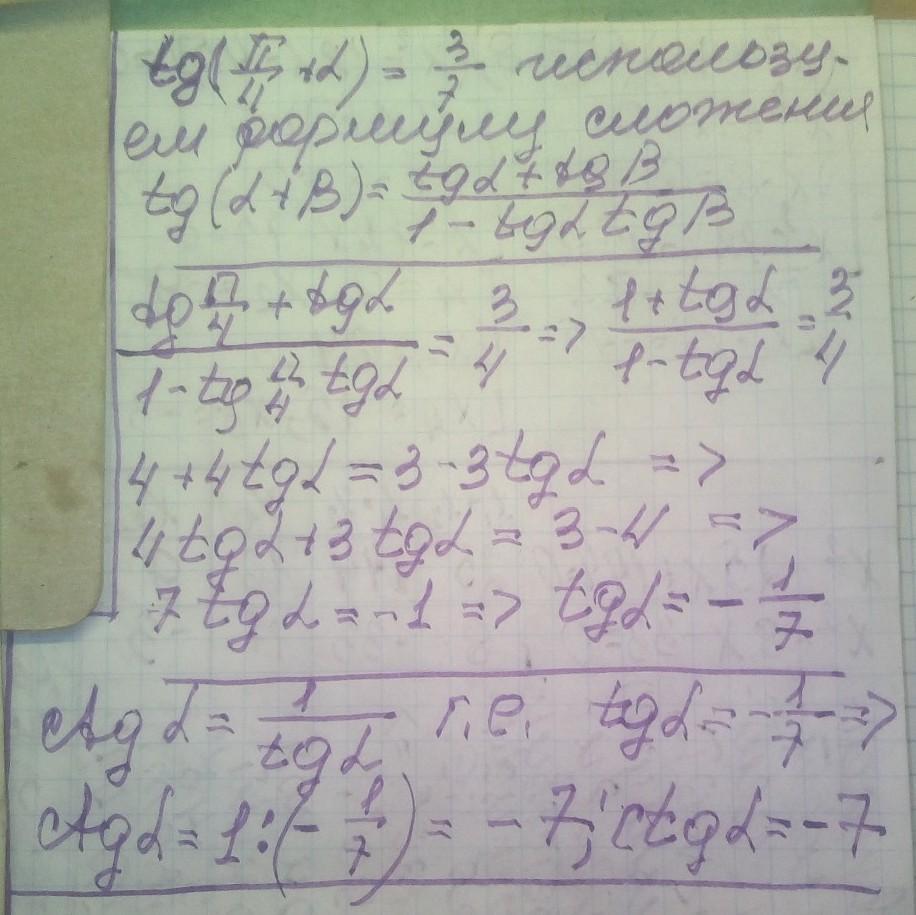 tg(π/4 + α) = 3/7 использу-
ем формулу сложения
tg(α+β) = (tgα + tgβ)/(1 - tgα tgβ)
(tg π/4 + tgα)/(1 - tg π/4 tgα) = 3/4 => (1 + tgα)/(1 - tgα) = 3/4
4 + 4tgα = 3 - 3tgα =>
4tgα + 3tgα = 3 - 4 =>
7tgα = -1 => tgα = -1/7
ctgα = 1/tgα т.е. tgα = -1/7 =>
ctgα = 1:(-1/7) = -7; ctgα = -7